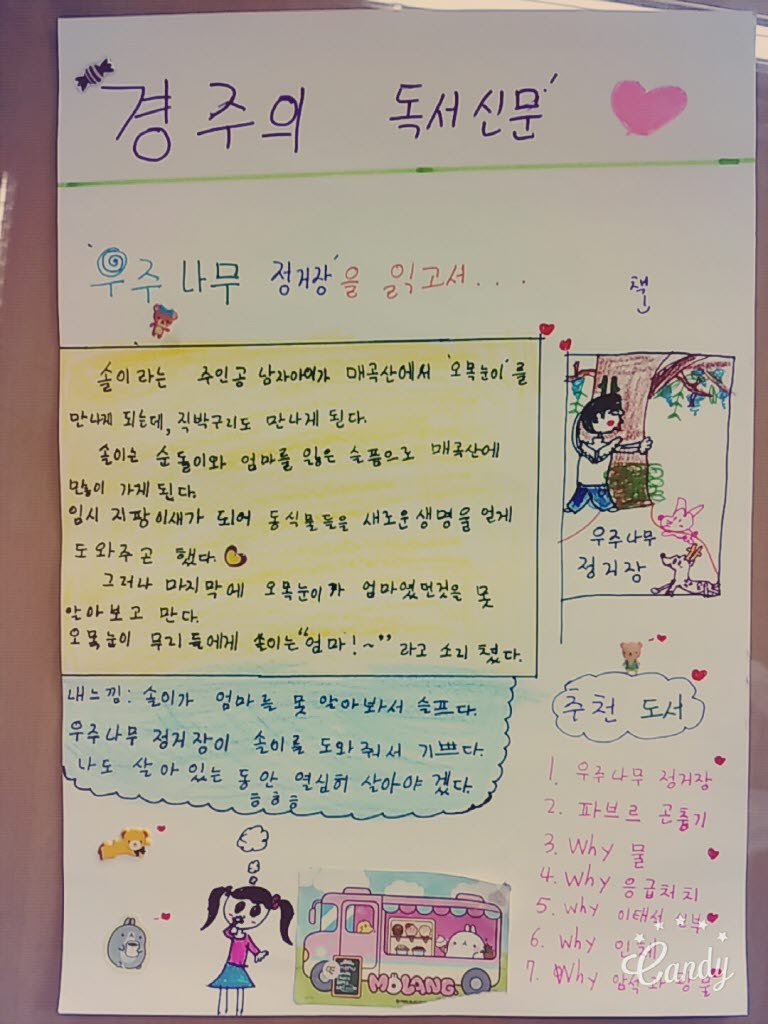 경주의 독서신문
'우주나무 정거장'을 읽고서...
책
솔이라는 주인공 남자아이가 매곡산에서 '오목눈이'를
만나게 되는데, 직박구리도 만나게 된다.
솔이는 순돌이와 엄마를 잃은 슬픔으로 매곡산에
많이 가게 된다.
임시 지팡이새가 되어 동식물들을 새로운생명을 얻게
도와주곤 했다.
그러나 마지막에 오목눈이가 엄마였던것을 못
알아보고 만다.
오목눈이 무리들에게 솔이는 "엄마!~" 라고 소리쳤다.
우주나무
정거장
내느낌: 솔이가 엄마를 못 알아봐서 슬프다.
우주나무 정거장이 솔이를 도와줘서 기쁘다.
나도 살아있는 동안 열심히 살아야 겠다.
ㅎㅎㅎ
추천 도서
1. 우주나무 정거장
2. 파브르 곤충기
3. Why 물
4. Why 응급처치
5. Why
6. Why 인체
7. Why 암석과 광물
MOLANG
Candy